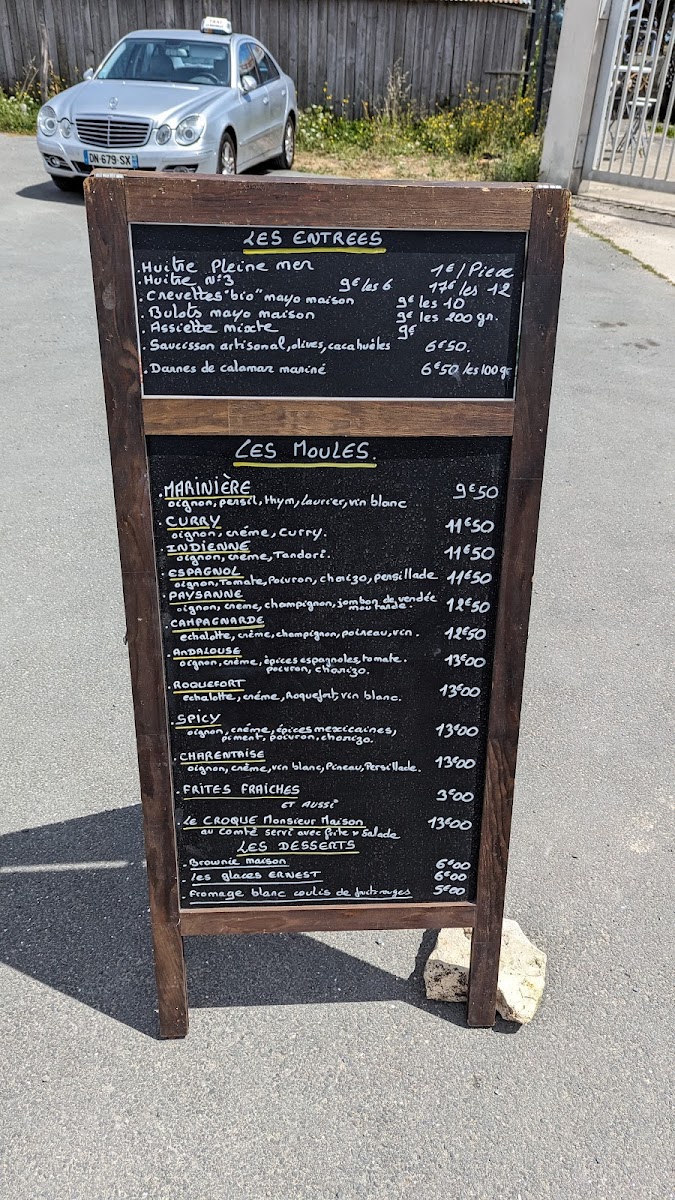 TAXI
DN-679-SX
LES ENTREES
. Huitre Pleine mer 1€/Piece
. Huitre N°3 9€ les 6 17€/les 12
. Crevettes "bio" mayo maison 9€ les 10
. Bulots mayo maison 9€ les 200 gr.
. Assiette mixte 9€
. Saucisson artisonal, olives, cacahuètes 6€50.
. Darnes de calamar mariné 6€50 les 100gr
LES MOULES.
. MARINIÈRE 9€50
oignon, persil, thym, laurier, vin blanc
. CURRY 11€50
oignon, créme, Curry.
. INDIENNE 11€50
oignon, crème, Tandori.
. ESPAGNOL 11€50
oignon, Tomate, Poivron, chorizo, persillade
. PAYSANNE 12€50
oignon, creme, champignon, jambon de vendée
moutarde.
. CAMPAGNARDE 12€50
echalotte, crème, champignon, poireau, vin.
. ANDALOUSE 13€00
oignon, crème, épices espagnoles, tomate.
poivron, chorizo.
. ROQUEFORT 13€00
echalotte, créme, Roquefort, vin blanc.
. SPICY 13€00
oignon, créme, épices mexicaines,
piment, poivron, chorizo.
. CHARENTAISE 13€00
oignon, crème, vin blanc, Pineau, Persillade.
. FRITES FRAICHES 3€00
ET AUSSI
. Le CROQUE Monsieur Maison 13€00
au Comté servi avec frite & Salade
LES DESSERTS
. Brownie maison 6€00
. les glaces ERNEST 6€00
. Fromage blanc coulis de fruits rouges 5€00